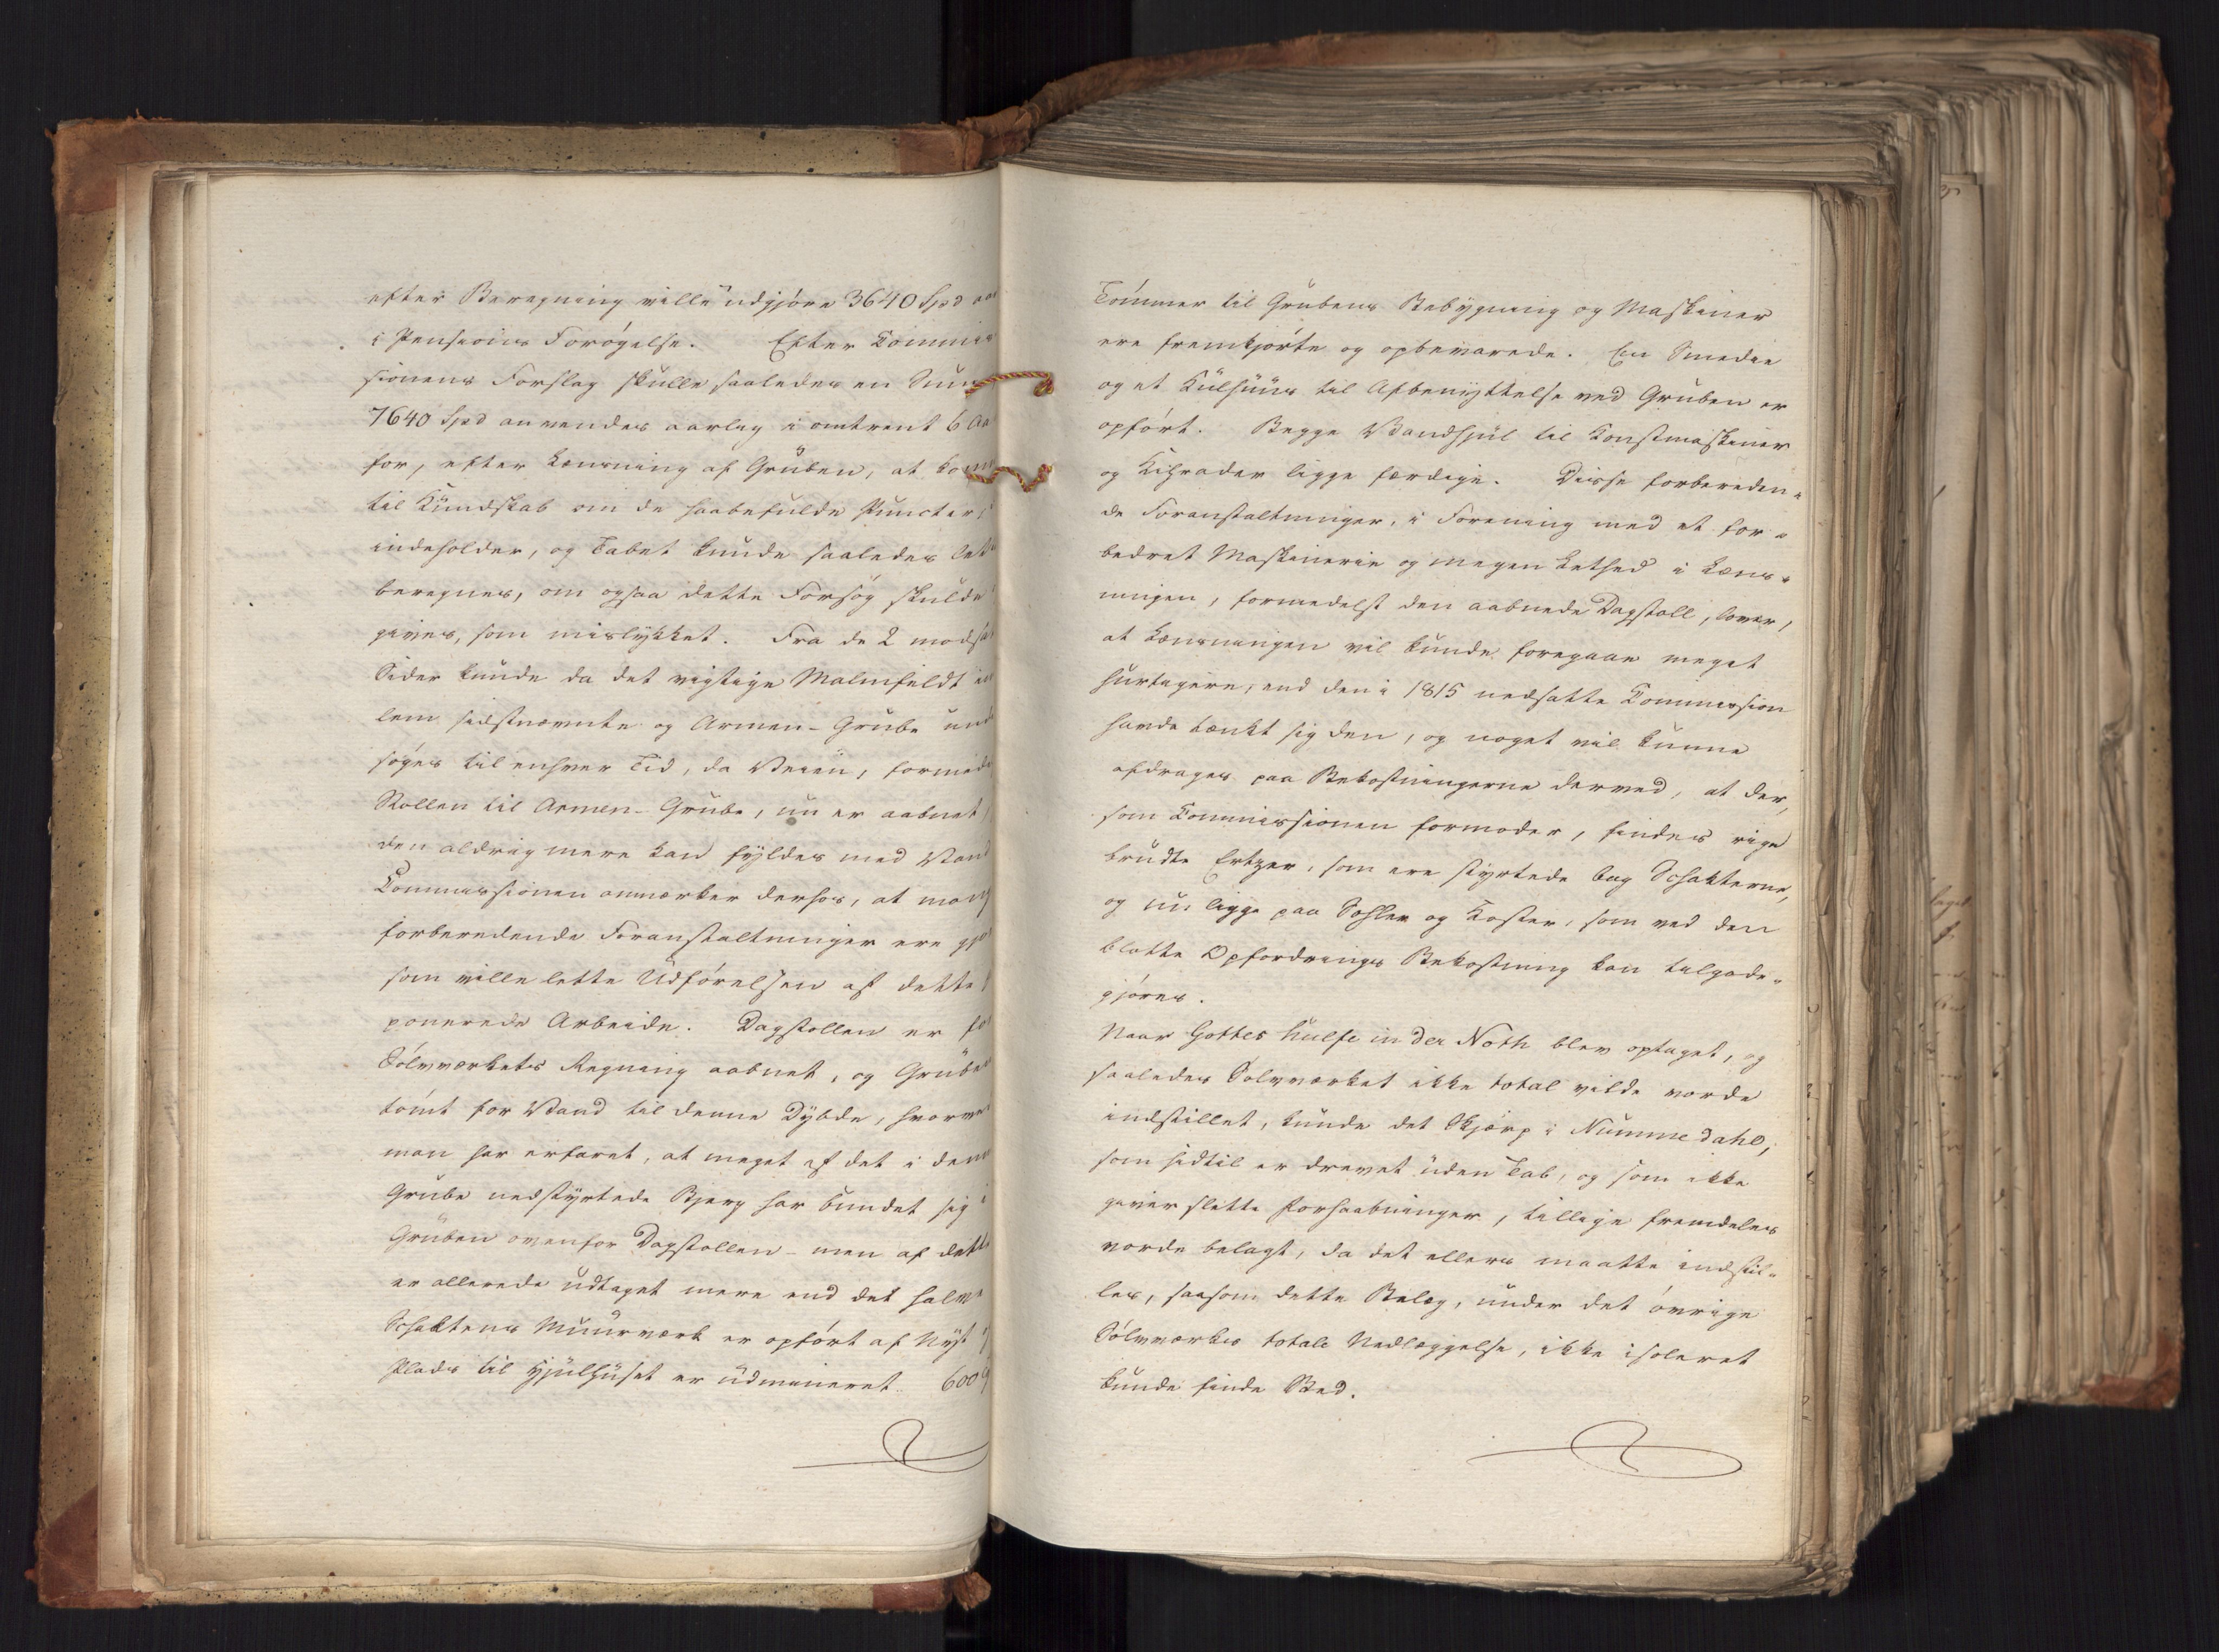 efter Beregning ville udgjöre 3640 Spd
i Pensions Forögelse. Efter Commis
sionens Forslag skulle saaledes en Sum
7640 Spd anvendes aarlig i omtrent 6 Aa
for, efter Lænsning af Gruben, at kom
til Kundskab om de haabefulde Puncter,
indeholder, og Tabet kunde saaledes let
beregnes, om ogsaa dette Forsög skulde
gives, som mislykket. Fra de 2 modsa
Sider kunde da det vigtige Malmfeldt
lem sidstnævnte og Armen-Grube und
söges til enhver Tid, da Veien, formed
Stollen til Armen-Grube, nu er aabnet,
den aldrig mere kan fyldes med Vand
Commissionen anmærker derhos, at mang
forberedende Foranstaltninger ere gjo
som ville lette Udförelsen af dette
ponerede Arbeide. Dagstollen er fo
Sölvværkets Regning aabnet, og Gruben
tömt for Vand til denne Dybde, hvorve
man har erfaret, at meget af det i denn
Grube nedstyrtede Bjerg har bundet sig i
Gruben ovenfor Dagstollen - men af dette
er allerede udtaget mere end det halve
Schaktens Muurværk er opfört af Nyt
Plads til Hjulhuset er udmineret. 600
Tömmer til Grubens Bebygning og Maskiner
ere fremkjörte og opbevarede. En Smedie
og et Kulhuus til Afbenyttelse ved Gruben er
opfört. Begge Vandhjul til Konstmaskiner
og Kehrader ligge færdige. Disse forbereden-
de Foranstaltninger, i Forening med et for-
bedret Maskinerie og megen Lethed i Læns-
ningen, formedelst den aabnede Dagstoll, lover,
at Lænsningen vil kunde foregaae meget
hurtigere, end den i 1815 nedsatte Commission
havde tænkt sig den, og noget vil kunne
afdrages paa Bekostningerne derved, at der,
som Commissionen formoder, findes rige
brudte Ertzer, som ere styrtede bag Schakterne,
og nu ligge paa Sohler og Kaster, som ved den
blotte Opfordrings Bekostning kan tilgode-
gjöres.
Naar Gottes Hülfe in der Noth blev optaget, og
saaledes Sölvværket ikke total vilde vorde
indstillet, kunde det Skjærp i Nummedahl,
som hidtil er drevet uden Tab, og som ikke
giver slette Forhaabninger, tillige fremdeles
vorde belagt, da det ellers maatte indstil-
les, saasom dette Belæg, under det övrige
Sölvværks totale Nedlæggelse, ikke isoleret
kunde finde Sted.